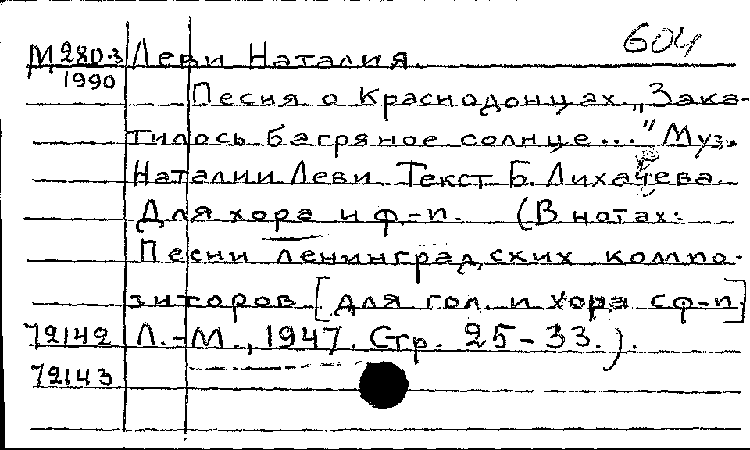 604
М280-3 Леви Наталия.
1990
Песня о Краснодонцах. „Зака-
тилось багряное солнце..." Муз.
Наталии Леви. Текст Б. Лихачева
Для хора и ф.-п. (В нотах:
Песни ленинградских компо-
зиторов [для гол. и хора с ф-п]
72142 Л.-М., 1947. Стр. 25-33.).
72143